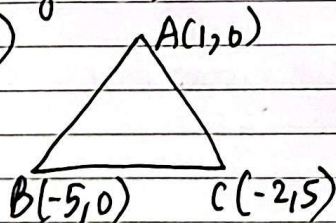 )
A(1,0)
B(-5,0) C(-2,5)